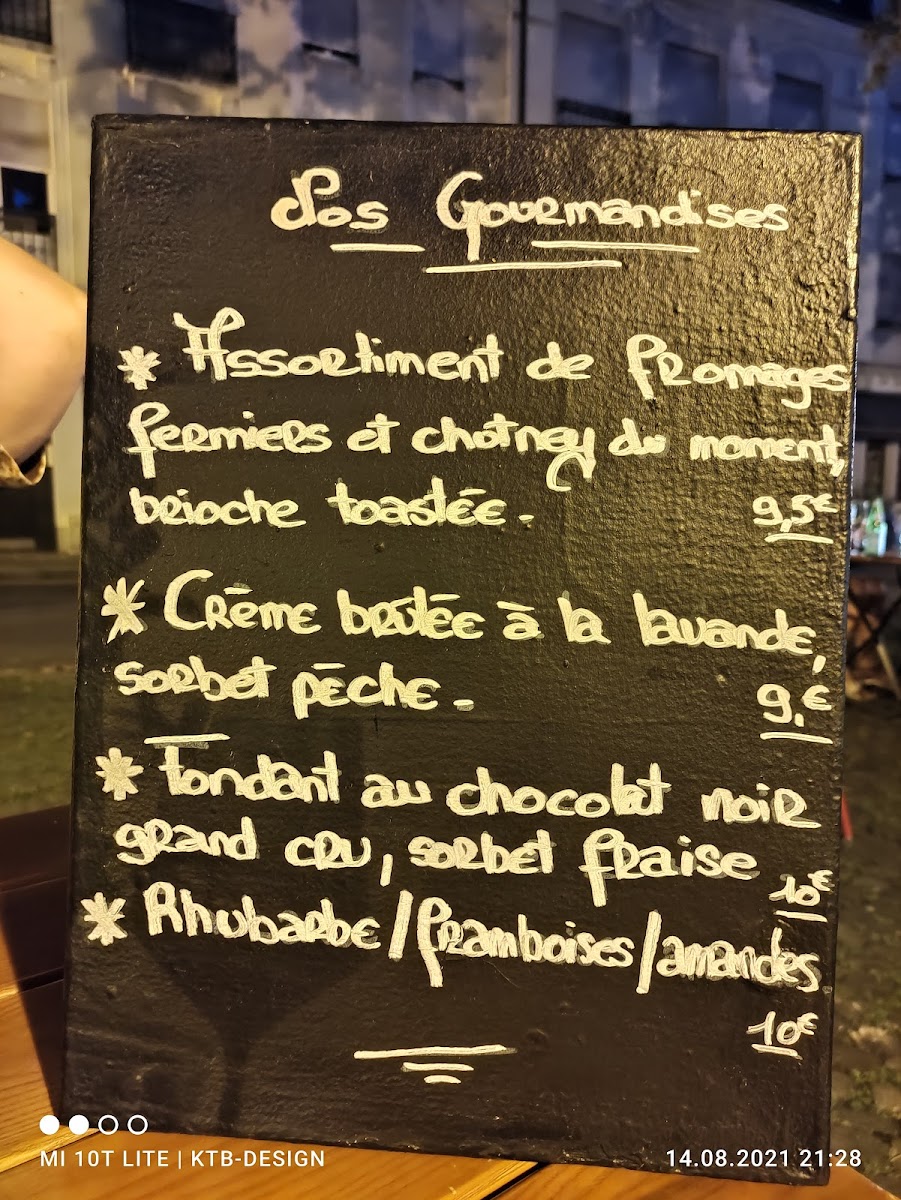 Nos Gourmandises
* Assortiment de fromages
fermiers et chutney du moment,
brioche toastée.
9,5€
* Crème brûlée à la lavande,
sorbet pêche.
9.€
* Fondant au chocolat noir
grand cru, sorbet fraise
10€
* Rhubarbe/framboises/amandes
10€
MI 10T LITE | KTB-DESIGN
14.08.2021 21:28